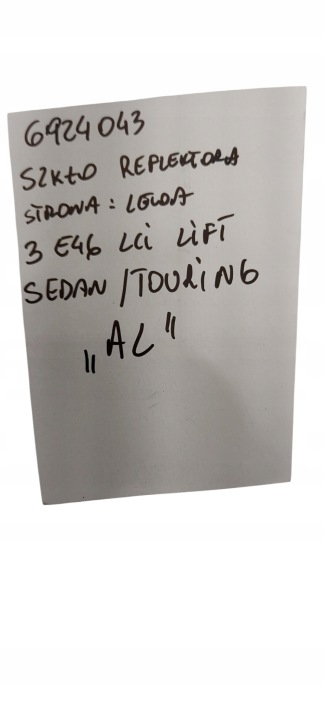 6924043
SZKŁO REFLEKTORA
STRONA : LEWA
3 E46 LCi LiFT
SEDAN /TOURiNG
„AL"